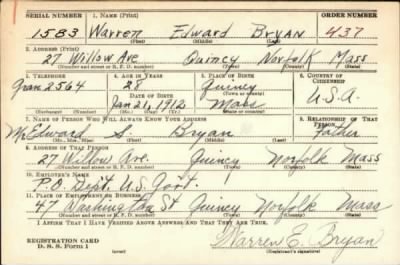 SERIAL NUMBER 1. NAME (Print) ORDER NUMBER
1583 Warren Edward Bryan 437
(First) (Middle) (Last)
2. ADDRESS (Print)
27 Willow Ave Quincy Norfolk Mass
(Number and street or R. F. D. number) (Town) (County) (State)
3. TELEPHONE 4. AGE IN YEARS 5. PLACE OF BIRTH 6. COUNTRY OF CITIZENSHIP
28 Quincy
Gran 2564 DATE OF BIRTH (Town or county)
Jan 21, 1912 Mass U.S.A.
(Mo.) (Day) (Yr.) (State or country)
7. NAME OF PERSON WHO WILL ALWAYS KNOW YOUR ADDRESS 8. RELATIONSHIP OF THAT PERSON
Mr Edward S. Bryan Father
(Mr., Mrs., Miss) (First) (Middle) (Last)
9. ADDRESS OF THAT PERSON
27 Willow Ave. Quincy Norfolk Mass
(Number and street or R. F. D. number) (Town) (County) (State)
10. EMPLOYER'S NAME
P.O. Dept. U.S. Govt.
11. PLACE OF EMPLOYMENT OR BUSINESS
47 Washington St Quincy Norfolk Mass
(Number and street or R. F. D. number) (Town) (County) (State)
I AFFIRM THAT I HAVE VERIFIED ABOVE ANSWERS AND THAT THEY ARE TRUE.
REGISTRATION CARD
D. S. S. Form 1 (over) Warren E. Bryan
(Registrant's signature)